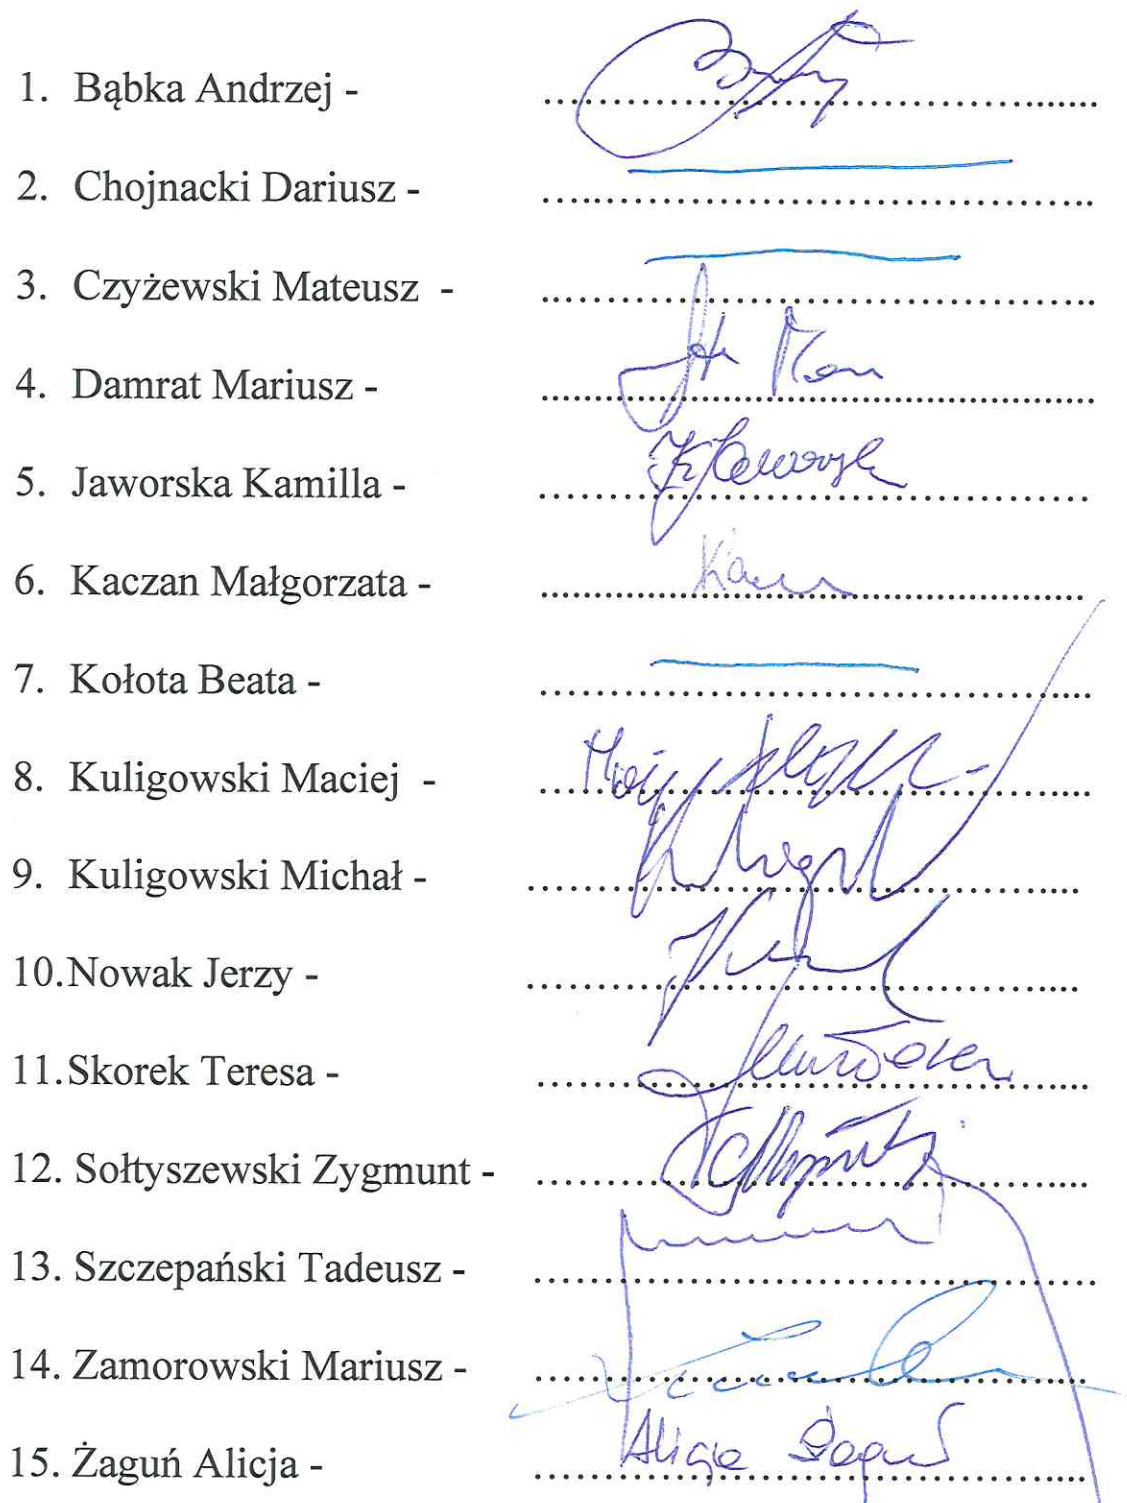 1. Bąbka Andrzej - ....................................
2. Chojnacki Dariusz - ....................................
3. Czyżewski Mateusz - ....................................
4. Damrat Mariusz - ....................................
5. Jaworska Kamilla - ....................................
6. Kaczan Małgorzata - ....................................
7. Kołota Beata - ....................................
8. Kuligowski Maciej - .................................... Maciej
9. Kuligowski Michał - ....................................
10. Nowak Jerzy - ....................................
11. Skorek Teresa - ....................................
12. Sołtyszewski Zygmunt - ....................................
13. Szczepański Tadeusz - ....................................
14. Zamorowski Mariusz - ....................................
15. Żaguń Alicja - .................................... Alicja Żaguń